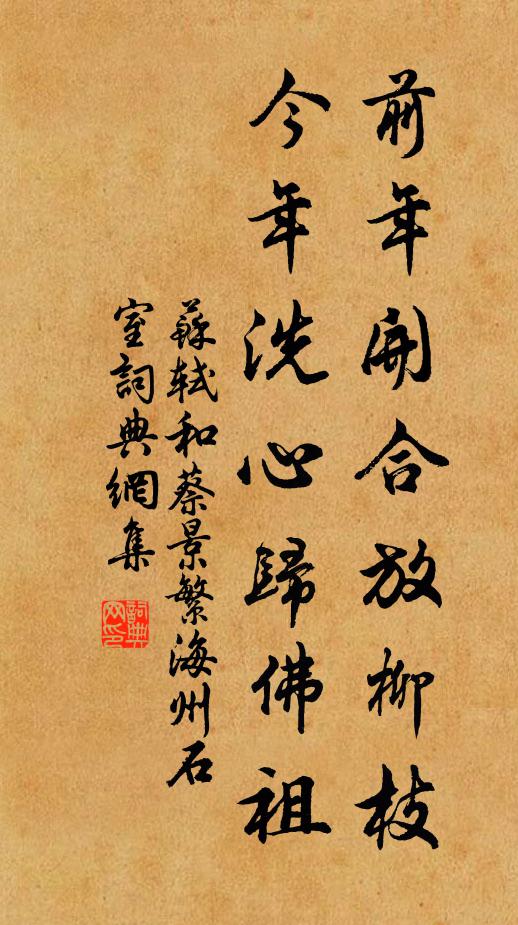 前年開合放柳枝
今年洗心歸佛祖
蘇軾和蔡景繁海州石
室詞典網集
詞典
网印